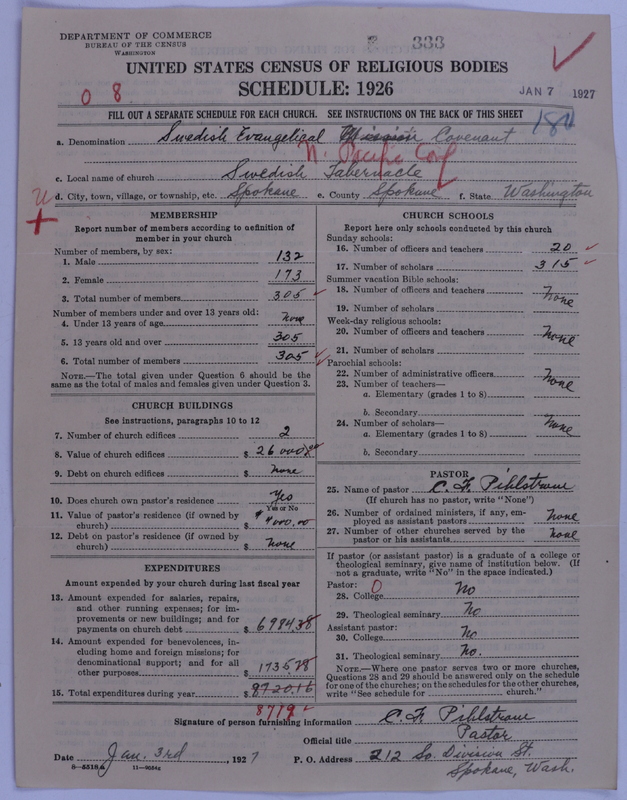 DEPARTMENT OF COMMERCE
BUREAU OF THE CENSUS
WASHINGTON
333
UNITED STATES CENSUS OF RELIGIOUS BODIES
SCHEDULE: 1926
JAN 7 1927
0 8
FILL OUT A SEPARATE SCHEDULE FOR EACH CHURCH. SEE INSTRUCTIONS ON THE BACK OF THIS SHEET
a. Denomination Swedish Evangelical Mission Covenant
N. Pacific Conf
c. Local name of church Swedish Tabernacle
d. City, town, village, or township, etc. Spokane e. County Spokane f. State Washington
MEMBERSHIP
Report number of members according to definition of
member in your church
Number of members, by sex:
1. Male 132
2. Female 173
3. Total number of members 305
Number of members under and over 13 years old:
4. Under 13 years of age None
5. 13 years old and over 305
6. Total number of members 305
NOTE.—The total given under Question 6 should be the
same as the total of males and females given under Question 3.
CHURCH BUILDINGS
See instructions, paragraphs 10 to 12
7. Number of church edifices 2
8. Value of church edifices $ 26000.00
9. Debt on church edifices $ None
10. Does church own pastor's residence Yes
Yes or No
11. Value of pastor's residence (if owned by
church) $ 4000.00
12. Debt on pastor's residence (if owned by
church) $ None
EXPENDITURES
Amount expended by your church during last fiscal year
13. Amount expended for salaries, repairs,
and other running expenses; for im-
provements or new buildings; and for
payments on church debt $ 6984.38
14. Amount expended for benevolences, in-
cluding home and foreign missions; for
denominational support; and for all
other purposes $ 1735.78
15. Total expenditures during year $ 8720.16
8719
CHURCH SCHOOLS
Report here only schools conducted by this church
Sunday schools:
16. Number of officers and teachers 20
17. Number of scholars 315
Summer vacation Bible schools:
18. Number of officers and teachers None
19. Number of scholars
Week-day religious schools:
20. Number of officers and teachers None
21. Number of scholars
Parochial schools:
22. Number of administrative officers None
23. Number of teachers—
a. Elementary (grades 1 to 8)
b. Secondary
24. Number of scholars— None
a. Elementary (grades 1 to 8)
b. Secondary
PASTOR
25. Name of pastor C. F. Pihlstrom
(If church has no pastor, write "None")
26. Number of ordained ministers, if any, em-
ployed as assistant pastors None
27. Number of other churches served by the
pastor or his assistants None
If pastor (or assistant pastor) is a graduate of a college or
theological seminary, give name of institution below. (If
not a graduate, write "No" in the space indicated.)
Pastor: 0
28. College No
29. Theological seminary No
Assistant pastor:
30. College No
31. Theological seminary No.
NOTE.—Where one pastor serves two or more churches,
Questions 28 and 29 should be answered only on the schedule
for one of the churches; on the schedules for the other churches,
write "See schedule for church."
Signature of person furnishing information C. F. Pihlstrom
Official title Pastor
Date Jan. 3rd, 1927 P. O. Address 212 So. Division St.
Spokane, Wash.